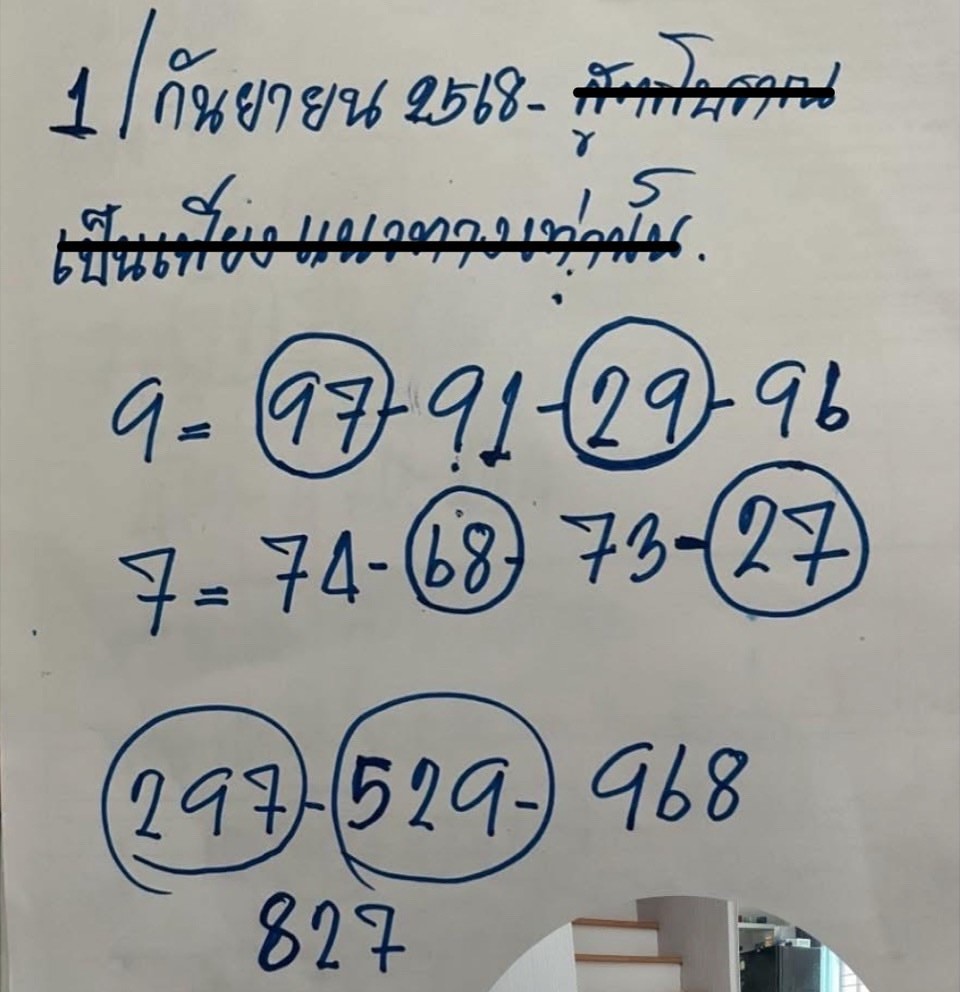 1/กันยายน 2568- สูตรโบราณ
เป็นเพียงแนวทางเท่านั้น.
9= 97-91-29-96
7= 74-68- 73-27
297-529- 968
827